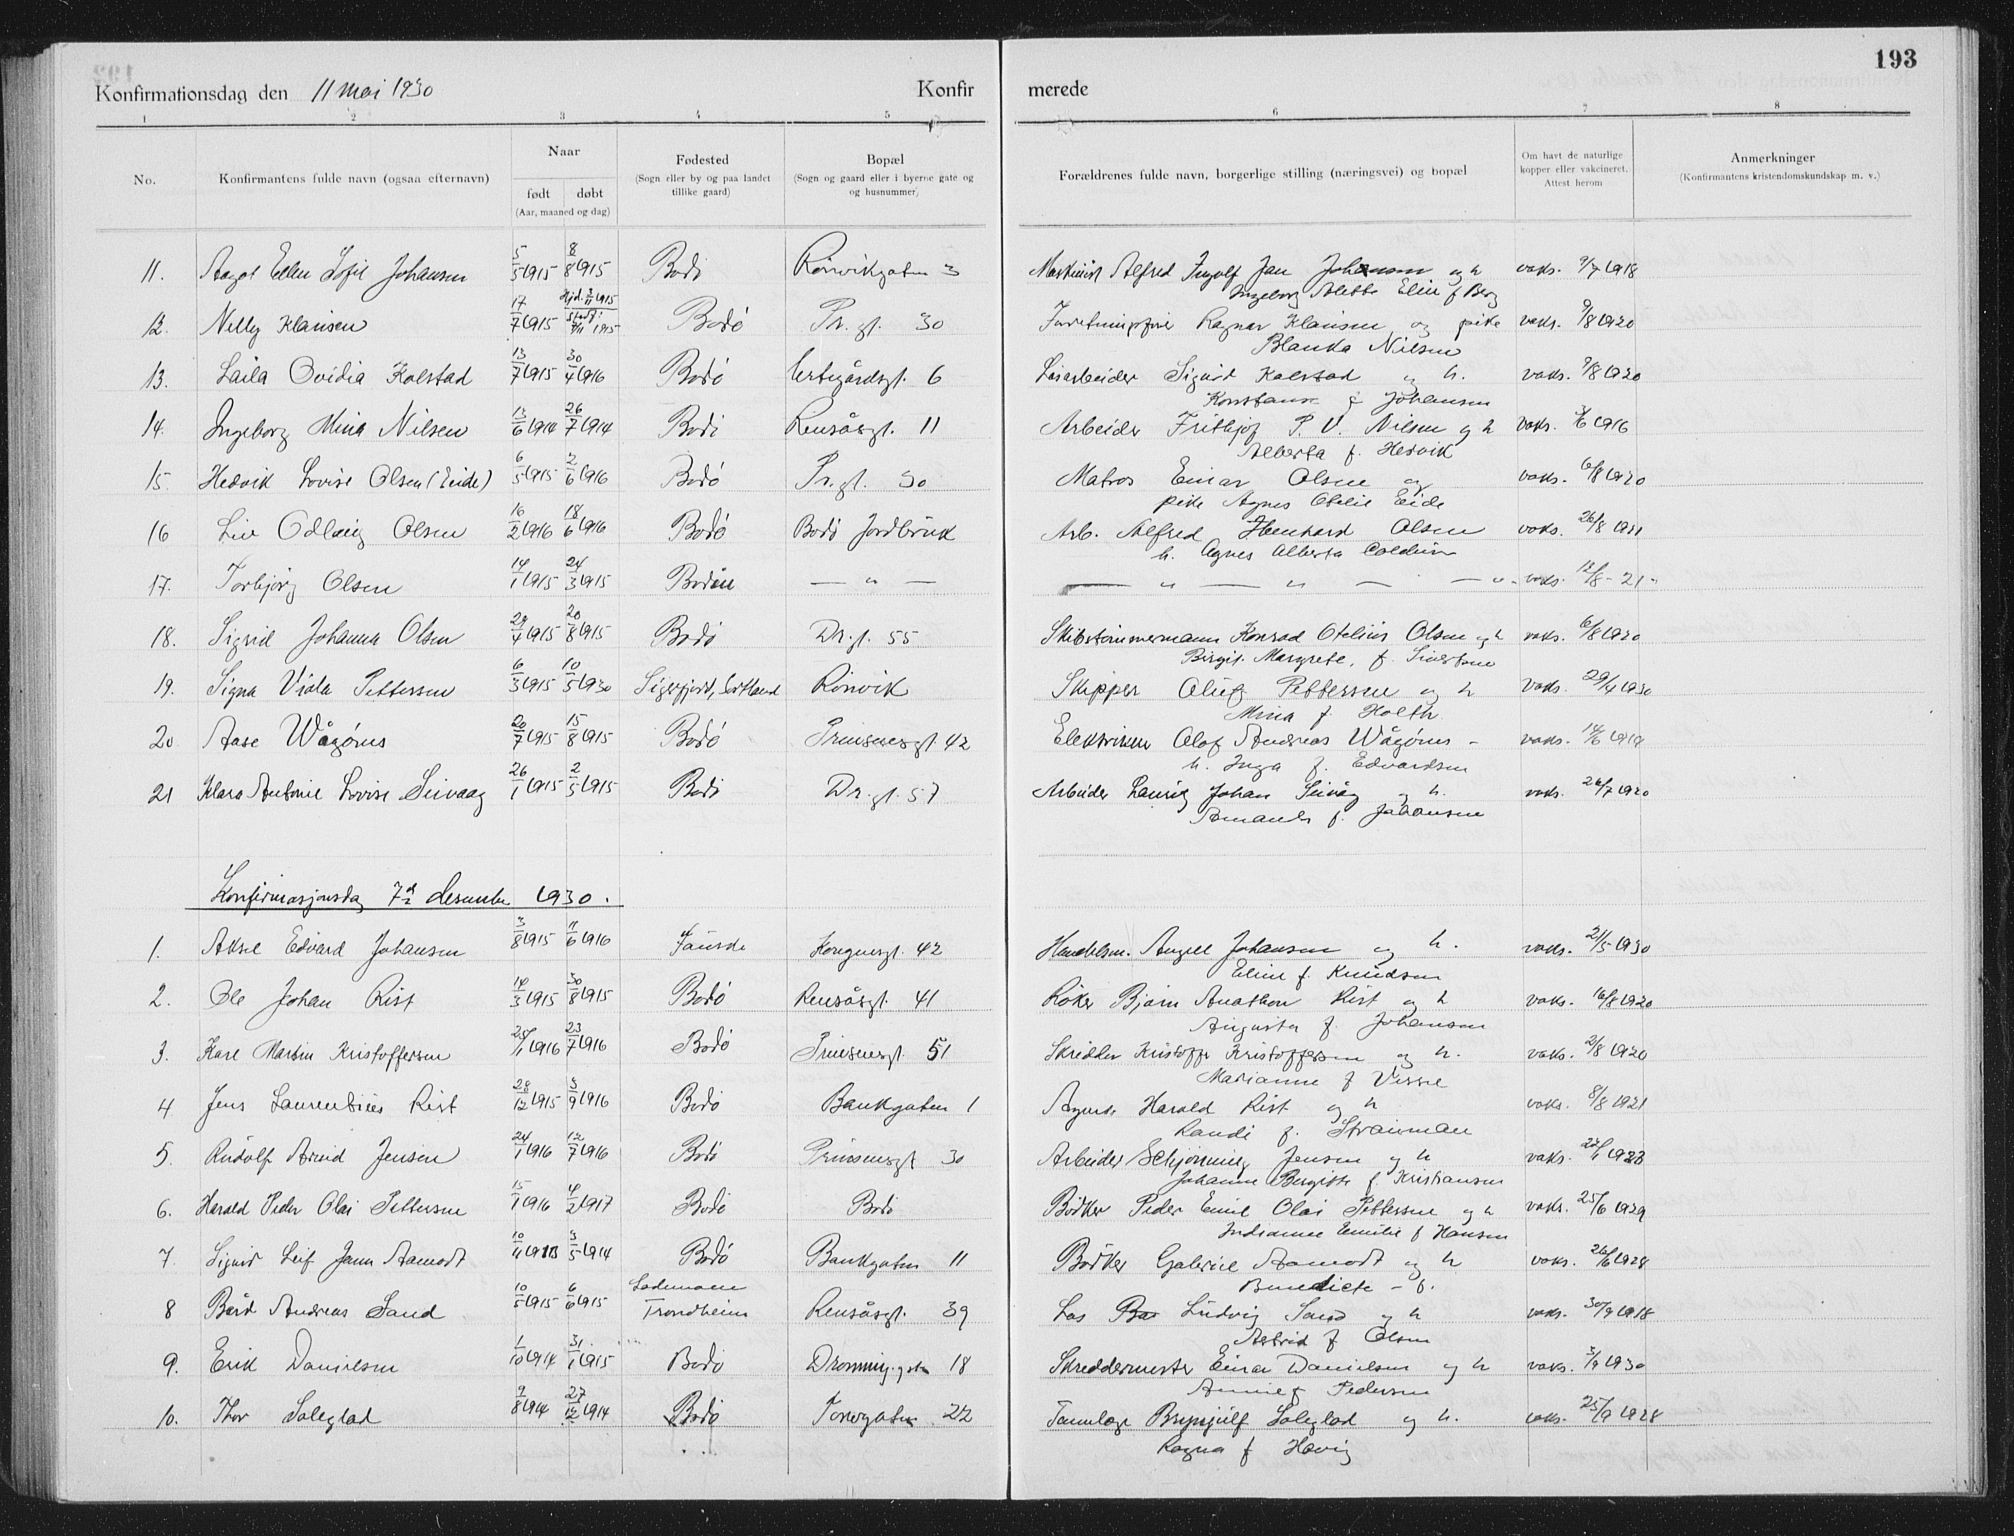 193
Konfirmationsdag den 11 mai 1930 Konfirmerede
1 2 3 4 5 6 7 8
No. Konfirmantens fulde navn (ogsaa efternavn) Naar født døbt (Aar, maaned og dag) Fødested (Sogn eller by og paa landet tillike gaard) Bopæl (Sogn og gaard eller i byerne gate og og husnummer) Forældrenes fulde navn, borgerlige stilling (næringsvei) og bopæl Om havt de naturlige kopper eller vakcineret. Attest herom Anmerkninger (Konfirmantens kristendomskundskap m. v.)
11. Aagot Ellen Sofie Johansen 5/5 1915 8/8 1915 Bodö Rönvikgaten 3 Maskinist Alfred Ingolf Jan Johansen og h vaks. 9/7 1918
Ingeborg Alette Elin f Berg
12. Nelly Klausen 17/7 1915 Bodö Pr. gt. 30 Ragnar Klausen og pike vaks. 9/8 1920
Blanka Nilsen
13. Laila Ovidia Kolstad 13/7 1915 30/4 1916 Bodö 6 Løsarbeider Sigurd Kolstad og h. vaks. 9/8 1920
Konstanse f Johansen
14. Ingeborg Mina Nilsen 13/6 1914 26/7 1914 Bodö Rensåsgt. 11 Arbeider Fritbjof P. V. Nilsen og h vaks. 1916
Alberta f. Hedvik
15. Hedvik Lovise Olsen (Eide) 6/5 1915 2/6 1916 Bodö Pr. gt. 30 Matros Einar Olsen og vaks. 6/8 1920
pike Agnes Otelie Eide
16 Liv Odlaug Olsen 16/2 1916 18/6 1916 Bodö Bodö Jordbruk Arb. Alfred Olsen vaks. 26/8 1921
h. Agnes Alberta
17. Torbjörg Olsen 14/1 1915 24/3 1915 Bodin — " — — " — " — — " - vaks. 12/8 - 21 -
18. Sigrid Johanna Olsen 29/4 1915 20/8 1915 Bodö Dr. gt. 55 Skibstømmermann Konrad Otelius Olsen og h vaks. 6/8 1920
Birgit Margrete, f. Sivertsen
19. Signa Viola Pettersen 6/3 1915 10/5 1930 Sigerfjord, Sortland Rönvik Skipper Oluf Pettersen og h vaks. 29/4 1930
Mina f. Holth
20 Aase Wågönes 20/7 1915 15/8 1915 Bodö Prinsensgt 42 Elektriker Olof Andreas Wågönes - vaks. 1919
h. Inga f. Edvardsen
21 Klara Antonie Lovise Seivaag 26/1 1915 2/5 1915 Bodö Dr. gt. 57 Arbeider Lauritz Johan Seivåg og h. vaks. 26/7 1920
Amanda f. Johansen
Konfirmasjonsdag 7de desember 1930.
1. Aksel Edvard Johansen 3/8 1915 11/6 1916 Fauske Kongensgt. 42 Handelsm. Angell Johansen og h. vaks. 21/5 1930
Eline f. Knudsen
2. Ole Johan Rist 14/3 1915 30/8 1915 Bodö Rensåsgt. 41 Røker Bjarn Anathon Rist og h vaks. 16/8 1920
Augusta f. Johansen
3. Kare Martin Kristoffersen 25/1 1916 23/7 1916 Bodö Prinsensgt. 51 Skredder Kristoffer Kristoffersen og h. vaks. 2/8 1920
Marianne f
4 Jens Laurentius Rist 28/12 1915 3/9 1916 Bodö Bankgaten 1 Agent Harald Rist og h vaks. 8/8 1921
Randi f. Strauman
5. Rudolf Arvid Jensen 24/1 1916 12/7 1916 Bodö Prinsensgt 30 Arbeider Schjönning Jensen og h vaks. 22/1 1923
Johanne Bergitte f Kristiansen
6. Harald Peder Olai Pettersen 15/1 1916 4/2 1917 Bodö Bodö Bödker Peder Emil Olai Pettersen og h vaks. 25/6 1929
Indianne Emilie f Hansen
7. Sigurd Leif Jann Aamodt 10/11 1913 3/5 1914 Bodö Bankgaten 11 Bödker Gabriel Aamodt og h vaks. 26/6 1928
Benedicte - f.
8 Bård Andreas Sand 10/5 1915 6/6 1915 Lademoen Trondheim Rensåsgt. 39 Los Ludvig Sand og h vaks. 30/9 1918
Astrid f Olsen
9. Erik Danielsen 1/10 1914 31/1 1915 Bodö Dronning. gate 18 Skreddermester Einar Danielsen og h vaks. 3/9 1930
Annie f Pedersen
10. Thor Soleglad 9/8 1914 27/12 1914 Bodö Torvgaten 22 Tannlæge Brynjulf Soleglad og h. vaks. 25/9 1928
Ragna f Hovig